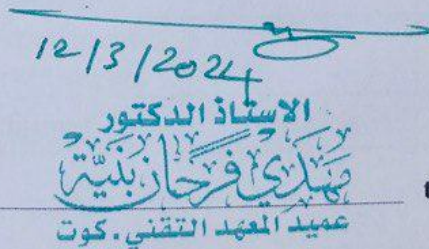 12/3/2024
الاستاذ الدكتور
مهدي فرحان بنية
عميد المعهد التقني . كوت